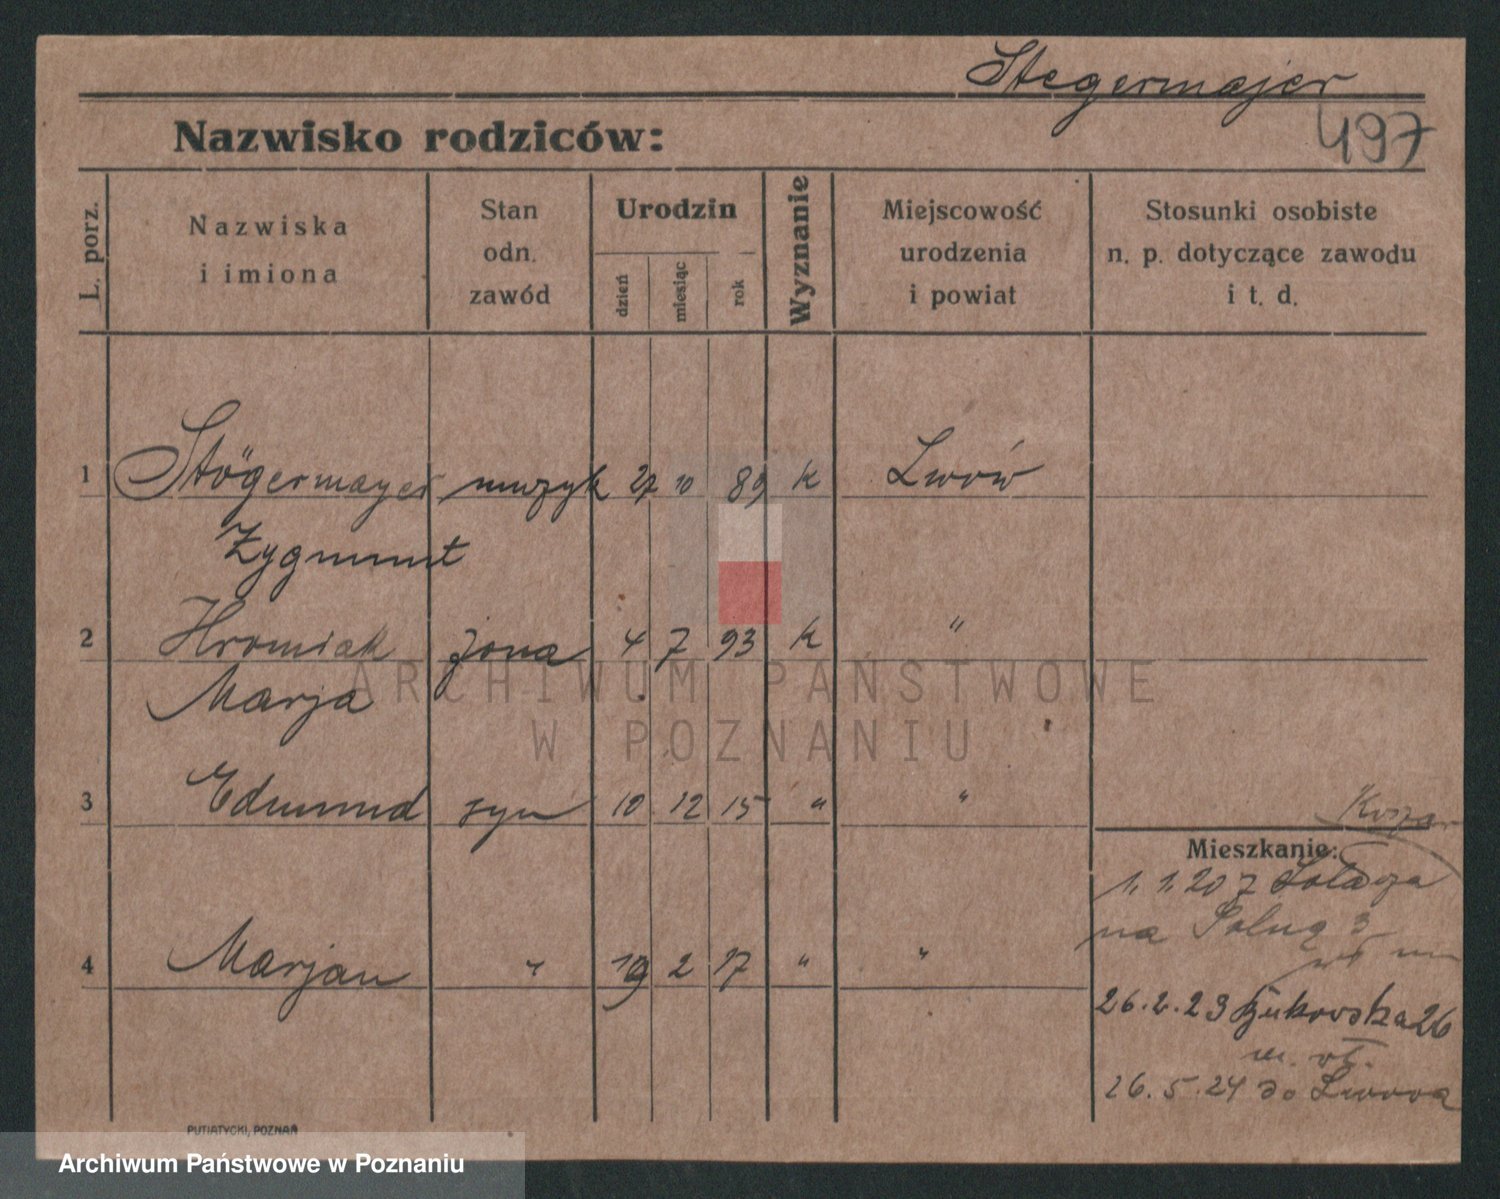 Stegermajer
Nazwisko rodziców:
497
L. porz.
Nazwiska
i imiona
Stan
odn.
zawód
Urodzin
dzień
miesiąc
rok
Wyznanie
Miejscowość
urodzenia
i powiat
Stosunki osobiste
n. p. dotyczące zawodu
i t. d.
1 Stögermayer muzyk 27 10 89 k Lwów
Zygmunt
2 Hromiak żona 4 7 93 k "
Marja
3 Edmund syn 10 12 15 " "
Mieszkanie:
1. 1. 20 z Łotacza
na Solną 3
4 Marjan " 19 2 17 " "
26.2.23 Bukowska 26
m. wł.
26.5.24 do Lwowa
PUTIATYCKI, POZNAŃ
ARCHIWUM PAŃSTWOWE
W POZNANIU
Archiwum Państwowe w Poznaniu